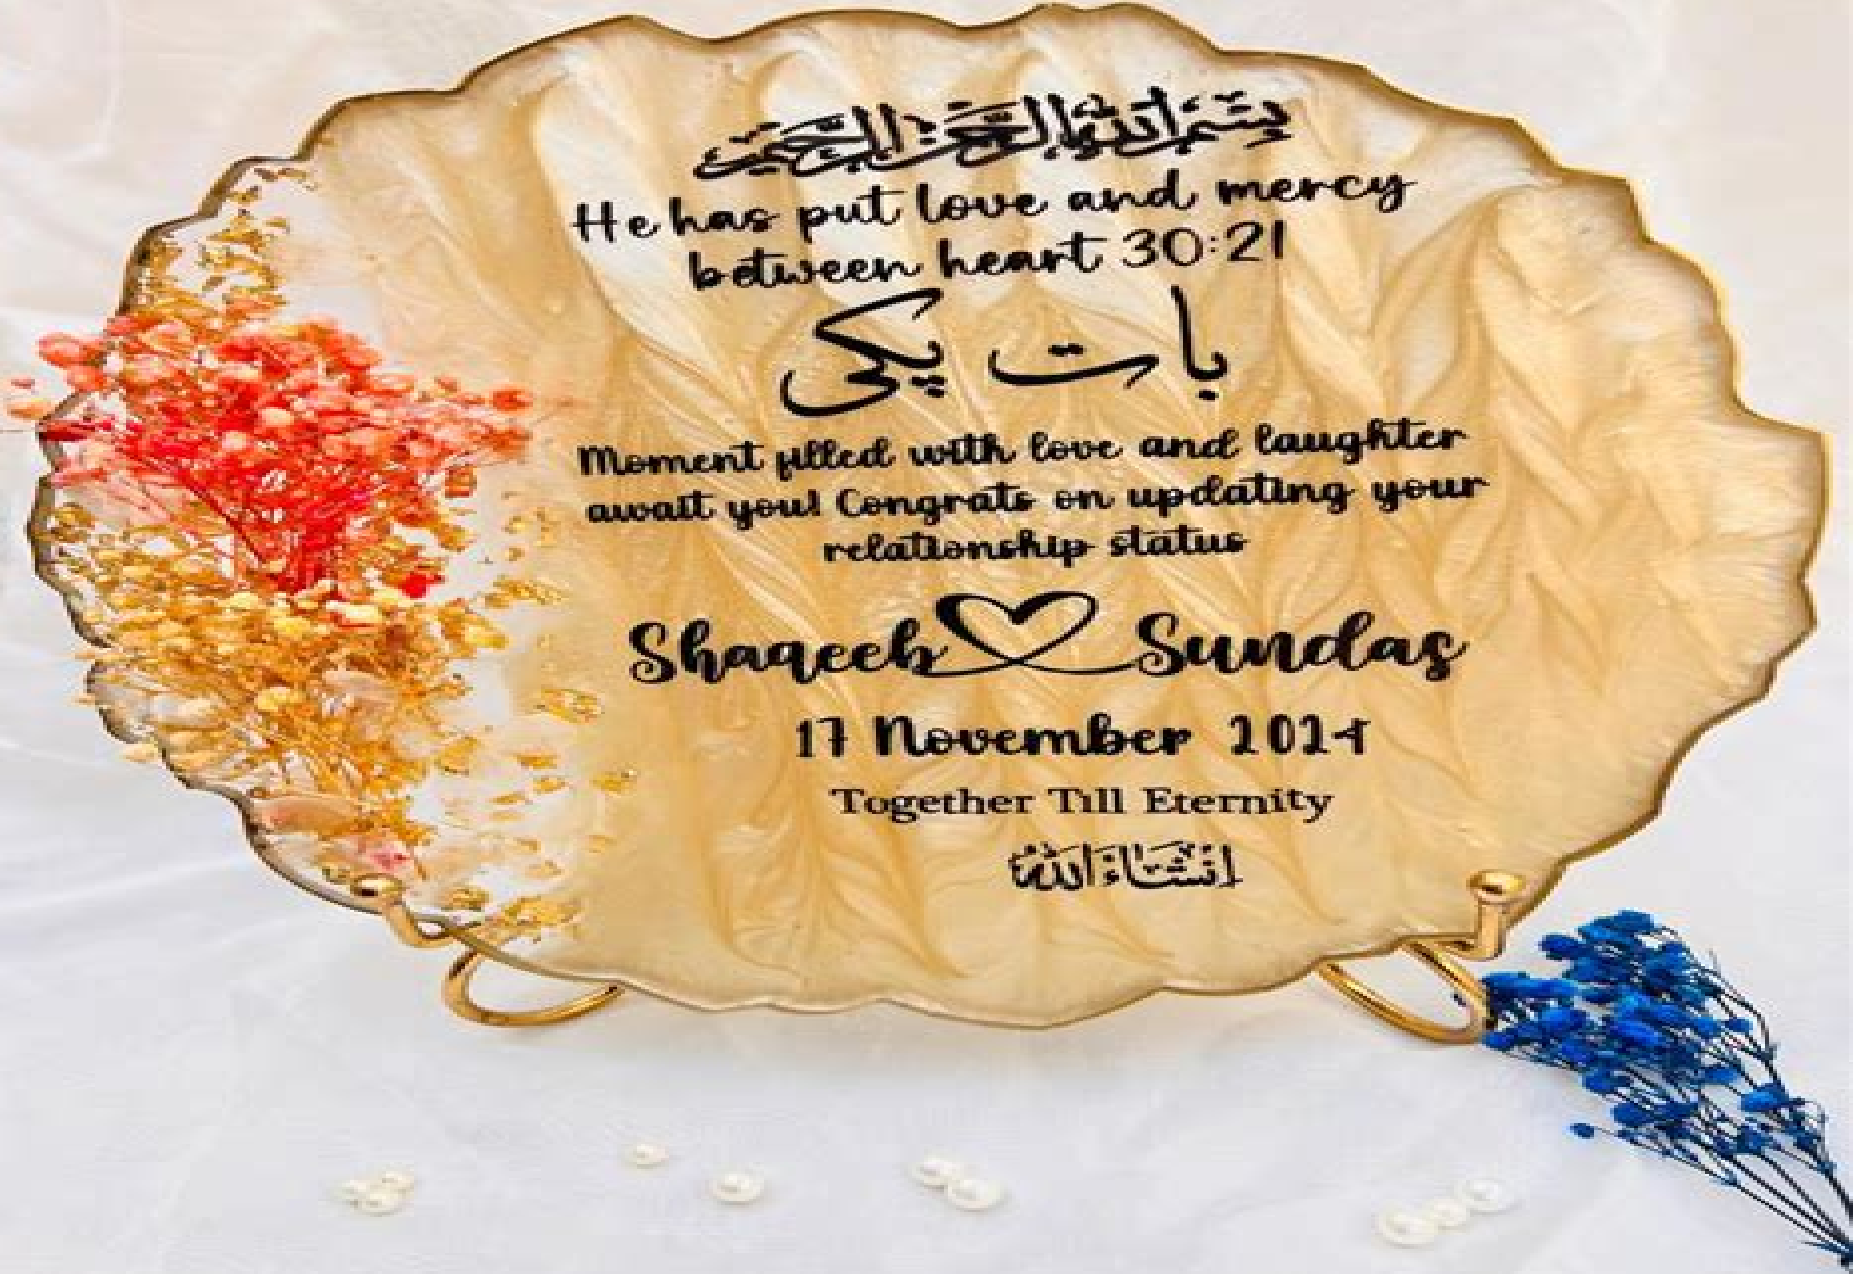 بسم الله الرحمن الرحيم
He has put love and mercy
between heart 30:21
بات پکی
Moment filled with love and laughter
await you! Congrats on updating your
relationship status
Shaqeeb Sundas
17 November 2024
Together Till Eternity
انشاء الله